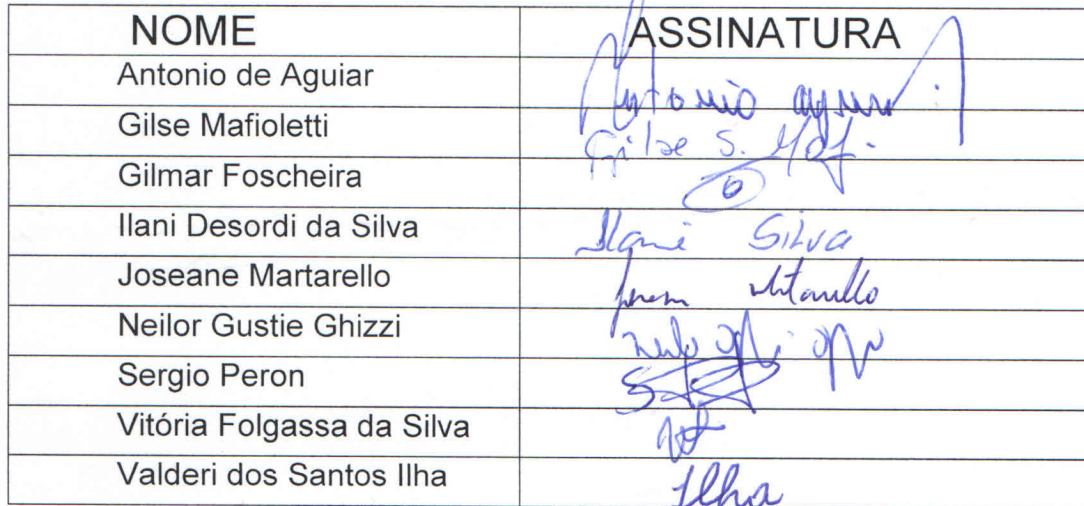 NOME ASSINATURA
Antonio de Aguiar Antonio
Gilse Mafioletti Gilse S. Maf.
Gilmar Foscheira
Ilani Desordi da Silva Ilani Silva
Joseane Martarello
Neilor Gustie Ghizzi
Sergio Peron
Vitória Folgassa da Silva
Valderi dos Santos Ilha Ilha